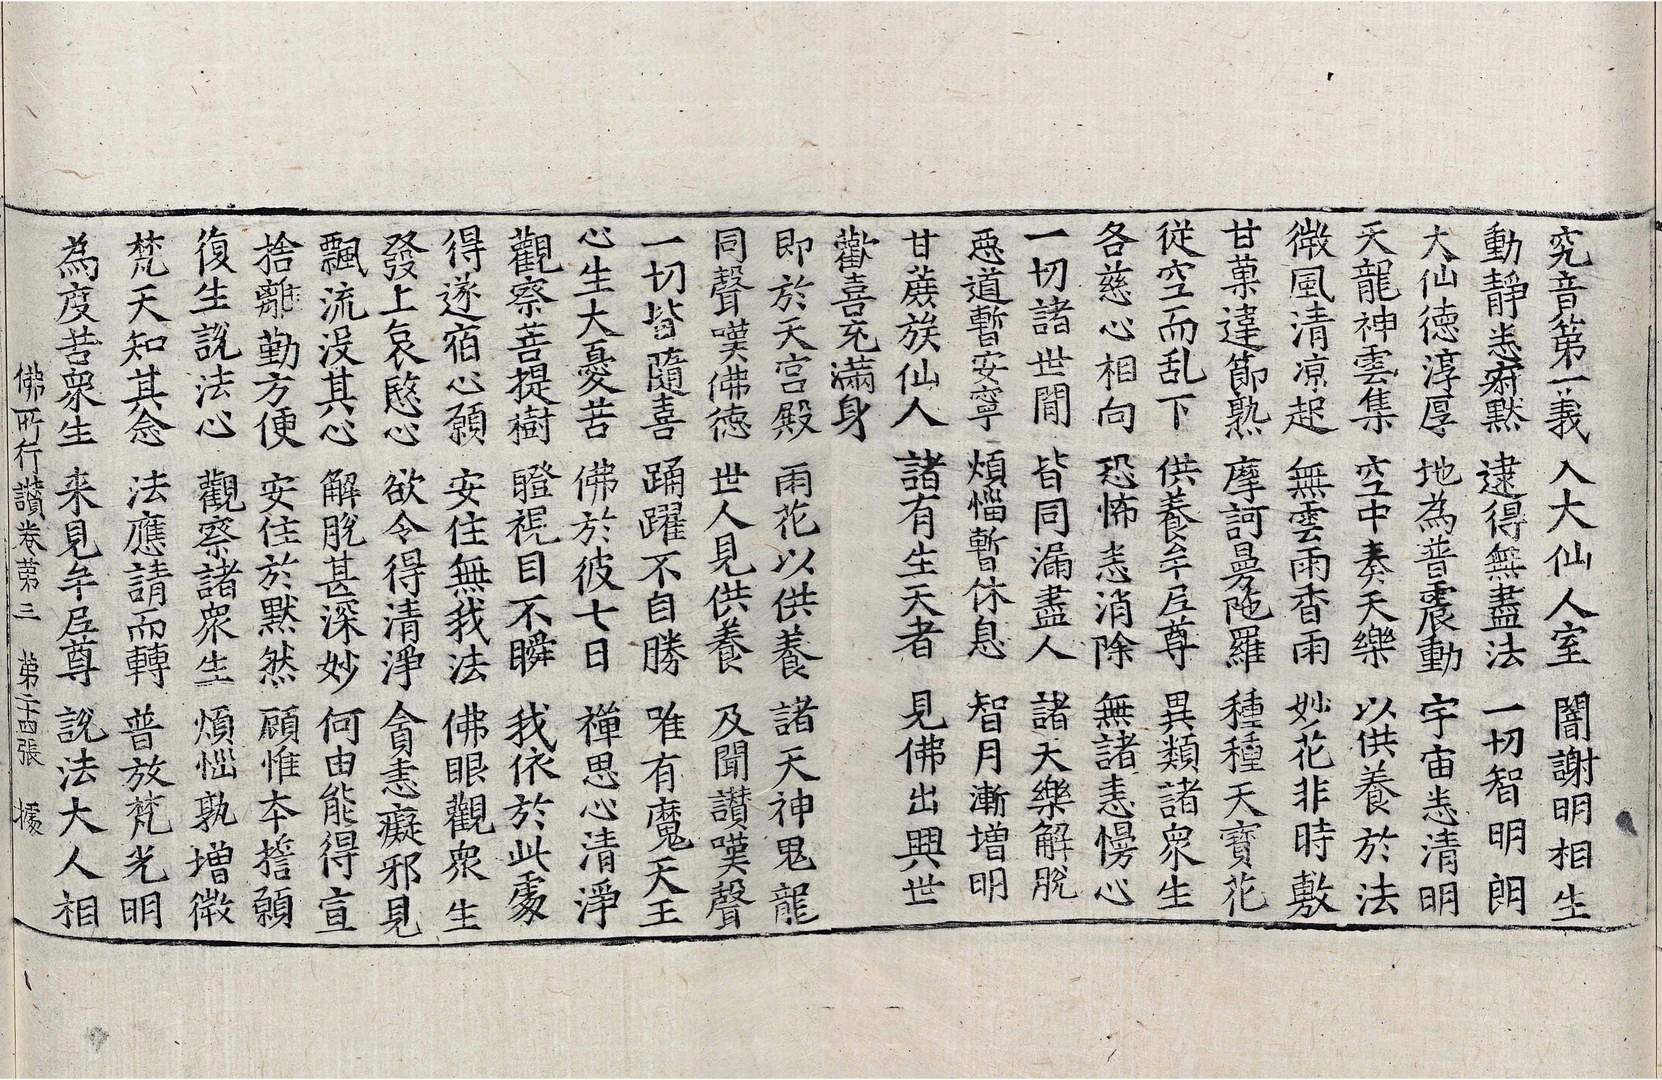 究竟第一義 入大仙人室 闇謝明相生
動靜悉寂默 逮得無盡法 一切智明朗
大仙德淳厚 地為普震動 宇宙悉清明
天龍神雲集 空中奏天樂 以供養於法
微風清涼起 無雲雨香雨 妙花非時敷
甘菓違節熟 摩訶曼陁羅 種種天寶花
從空而乱下 供養牟尼尊 異類諸衆生
各慈心相向 恐怖悉消除 無諸恚慢心
一切諸世間 皆同漏盡人 諸天樂解脫
惡道暫安寧 煩惱暫休息 智月漸增明
甘蔗族仙人 諸有生天者 見佛出興世
歡喜充滿身
即於天宮殿 雨花以供養 諸天神鬼龍
同聲嘆佛德 世人見供養 及聞讚嘆聲
一切皆隨喜 踊躍不自勝 唯有魔天王
心生大憂苦 佛於彼七日 禪思心清淨
觀察菩提樹 瞪視目不瞬 我依於此處
得遂宿心願 安住無我法 佛眼觀衆生
發上哀慜心 欲令得清淨 貪恚癡邪見
飄流沒其心 解脫甚深妙 何由能得宣
捨離勤方便 安住於默然 顧惟本誓願
復生說法心 觀察諸衆生 煩惱孰增微
梵天知其念 法應請而轉 普放梵光明
為度苦衆生 来見牟尼尊 說法大人相
佛所行讚卷第三 第二十四張 據